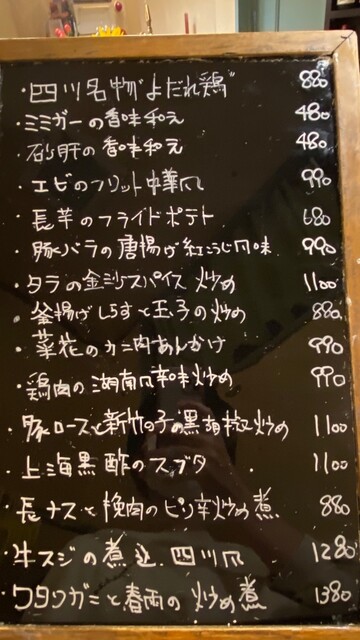 ・四川名物"よだれ鶏" 880
・ミミガーの香味和え 480
砂肝の香味和え 480
・エビのフリット中華風 990
・長芋のフライドポテト 680
・豚バラの唐揚げ紅こうじ風味 990
・タラの金沙スパイス炒め 1100
・釜揚げしらすと玉子の炒め 880
・菜花のカニ肉あんかけ 990
・鶏肉の湖南風辛味炒め 990
・豚ロースと新竹の子の黒胡椒炒め 1100
・上海黒酢のスブタ 1100
・長ナスと挽肉のピリ辛炒め煮 880
・牛スジの煮込 四川風 1280
・ワタリガニと春雨の炒め煮 1380